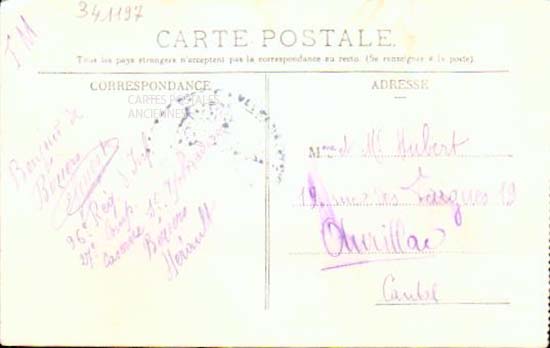 341197
FM
CARTE POSTALE
Tous les pays étrangers n'acceptent pas la correspondance au recto. (Se renseigner à la poste).
CORRESPONDANCE
ADRESSE
CARTES POSTALES
ANCIENNES
Bonjour de
Béziers
96e Rég. d'Inf
27e Comp.
Caserne St.
Béziers
Hérault
Mme et Mr Hubert
19 rue des Fargues 19
Aurillac
Cantal